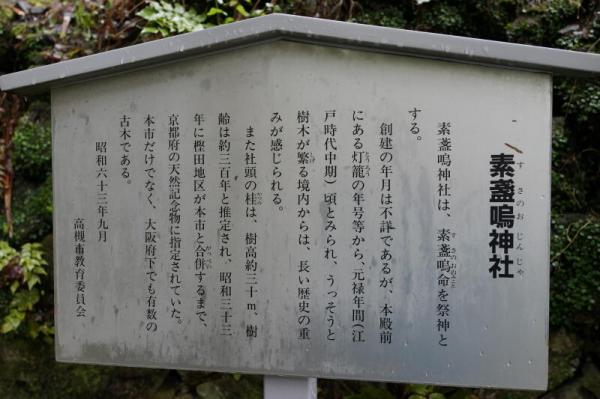 素盞嗚神社
すさのおじんじゃ
素盞嗚神社は、素盞嗚命を祭神と
すさのおのみこと
する。
創建の年月は不詳であるが、本殿前
にある灯籠の年号等から、元禄年間(江
とうろう
戸時代中期)頃とみられ、うっそうと
樹木が繁る境内からは、長い歴史の重
しげ
みが感じられる。
また社頭の桂は、樹高約三十m、樹
かつら
齢は約三百年と推定され、昭和三十三
年に樫田地区が本市と合併するまで、
がっぺい
京都府の天然記念物に指定されていた。
本市だけでなく、大阪府下でも有数の
古木である。
昭和六十三年九月
高槻市教育委員会